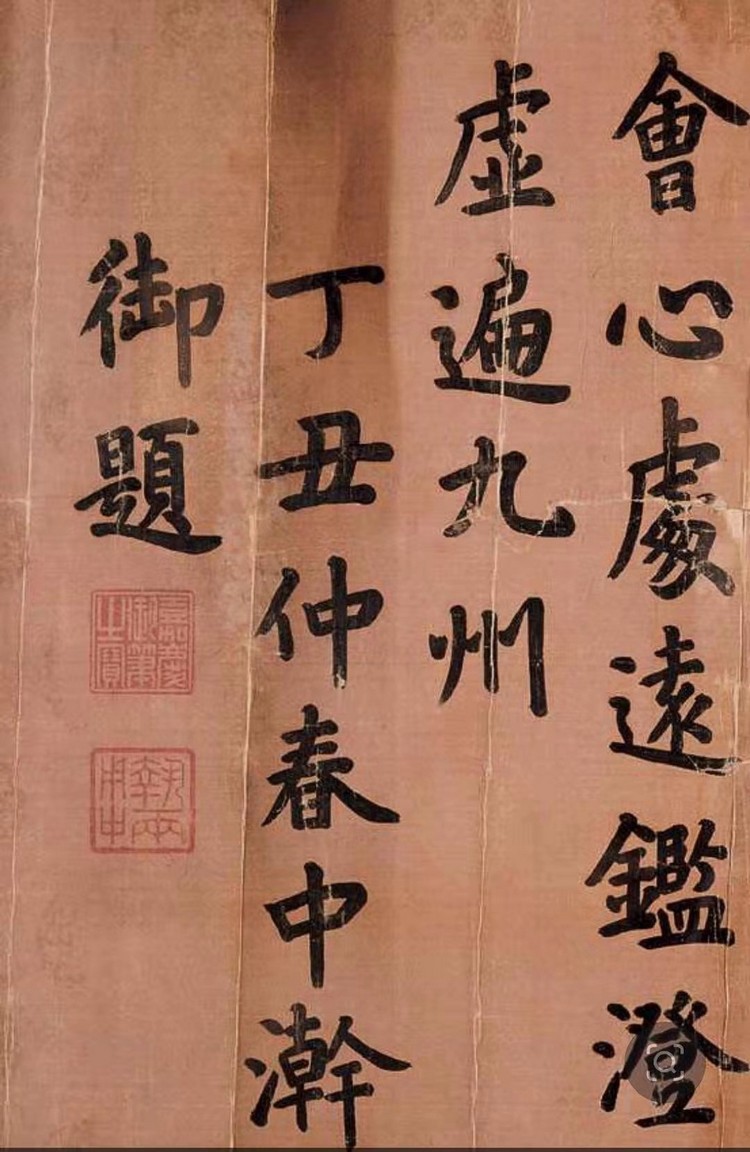 會心處遠鑑澄
虛遍九州
丁丑仲春中澣
御題
嘉慶
御筆
之寶
執兩
用中